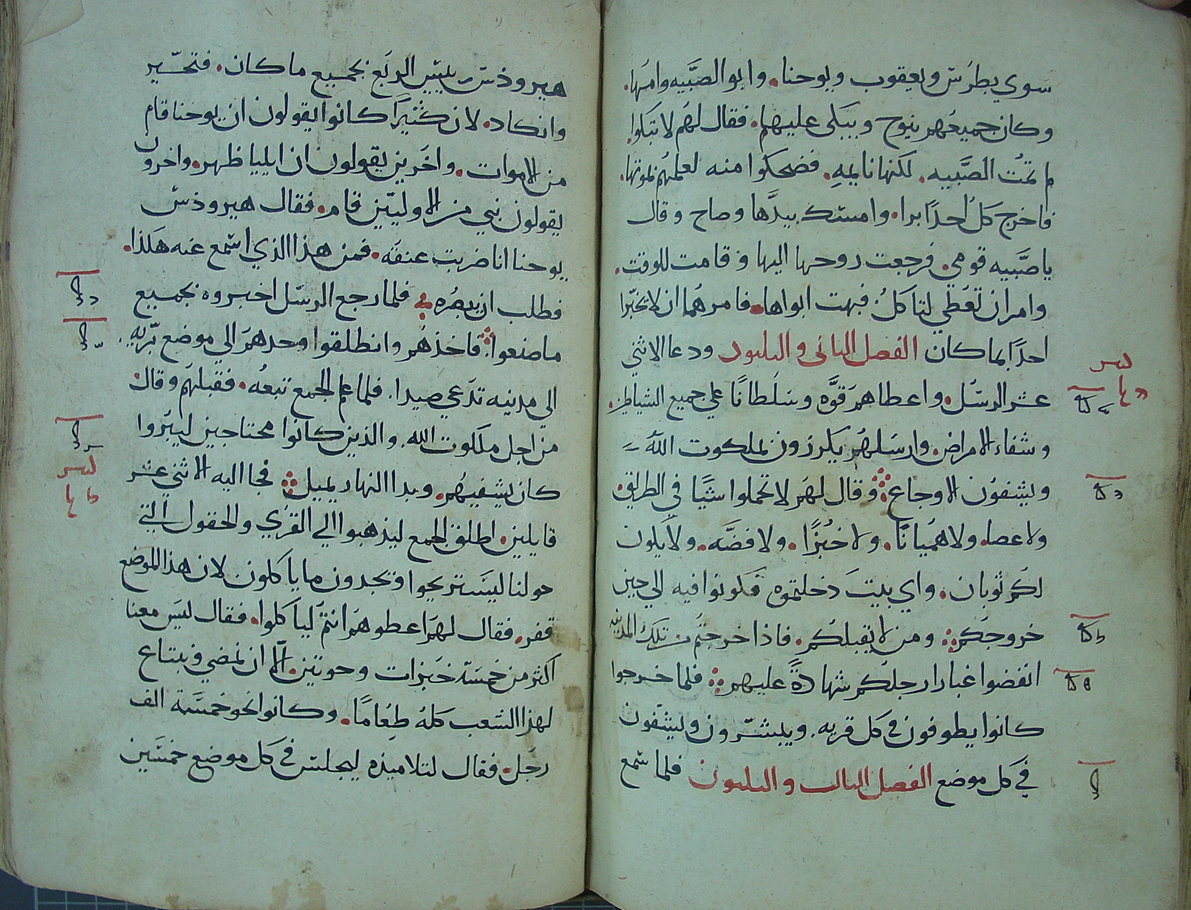 سوى بطرس ويعقوب ويوحنا. وابو الصبيه وامها.
وكان جميعهم ينوح ويبكي عليها. فقال لهم لا تبكوا
ما تمت الصبيه. لكنها نايمه. فضحكوا منه لعلمهم بموتها.
فاخرج كل احدًا برا. وامسك بيدها وصاح وقال
يا صبيه قومي. فرجعت روحها اليها وقامت للوقت.
وامر ان تعطي لتاكل. فبهت ابواها. فامرهما ان لا تخبرا
احدًا بما كان الفصل الثاني والثلثون ودعا الاثني
عشر الرسل. واعطاهم قوه وسلطانًا علي جميع الشياطين.
وشفاء الامراض. وارسلهم يكرزون بملكوت الله
ويشفون الاوجاع. وقال لهم لا تحملوا شيًا في الطريق.
ولا عصا. ولا هميانًا. ولا خبزًا. ولا فضه. ولا يكون
لكم ثوبان. واي بيت دخلتموه فكونوا فيه الي حين
خروجكم. ومن لا يقبلكم. فاذا خرجتم من تلك المدينه
انفضوا غبار ارجلكم شهادة عليهم. فلما خرجوا
كانوا يطوفون في كل قريه. ويبشرون ويشفون
في كل موضع الفصل الثالث والثلثون فلما سمع
هيرودس رييس الربع بجميع ما كان. فتحير
وانكاد. لان كثيرًا كانوا يقولون ان يوحنا قام
من الاموات. واخرين يقولون ان ايليا ظهر. واخرون
يقولون نبي من الاوليين قام. فقال هيرودس
يوحنا انا ضربت عنقه. فمن هذا الذي اسمع عنه هكذا.
فطلب ان يبصره. فلما رجع الرسل اخبروه بجميع
ما صنعوا. فاخذهم وانطلقوا وحدهم الى موضع بريه.
الي مدينه تدعى صيدا. فلما علم الجمع تبعه. فقبلهم وقال
من اجل ملكوت الله. والذين كانوا محتاجين ليبروا
كان يشفيهم. وبدا النهار يميل. فجا اليه الاثني عشر
قايلين. اطلق الجمع ليذهبوا الي القري والحقول التي
حولنا ليستريحوا ويجدون ما ياكلون لان هذا الموضع
قفر. فقال لهم اعطوهم انتم لياكلوا. فقال ليس معنا
اكثر من خمسة خبزات وحوتين. الا ان نمضي ونبتاع
لهذا الشعب كله طعامًا. وكانوا نحو خمسة الف
رجل. فقال لتلاميذه ليجلس في كل موضع خمسين